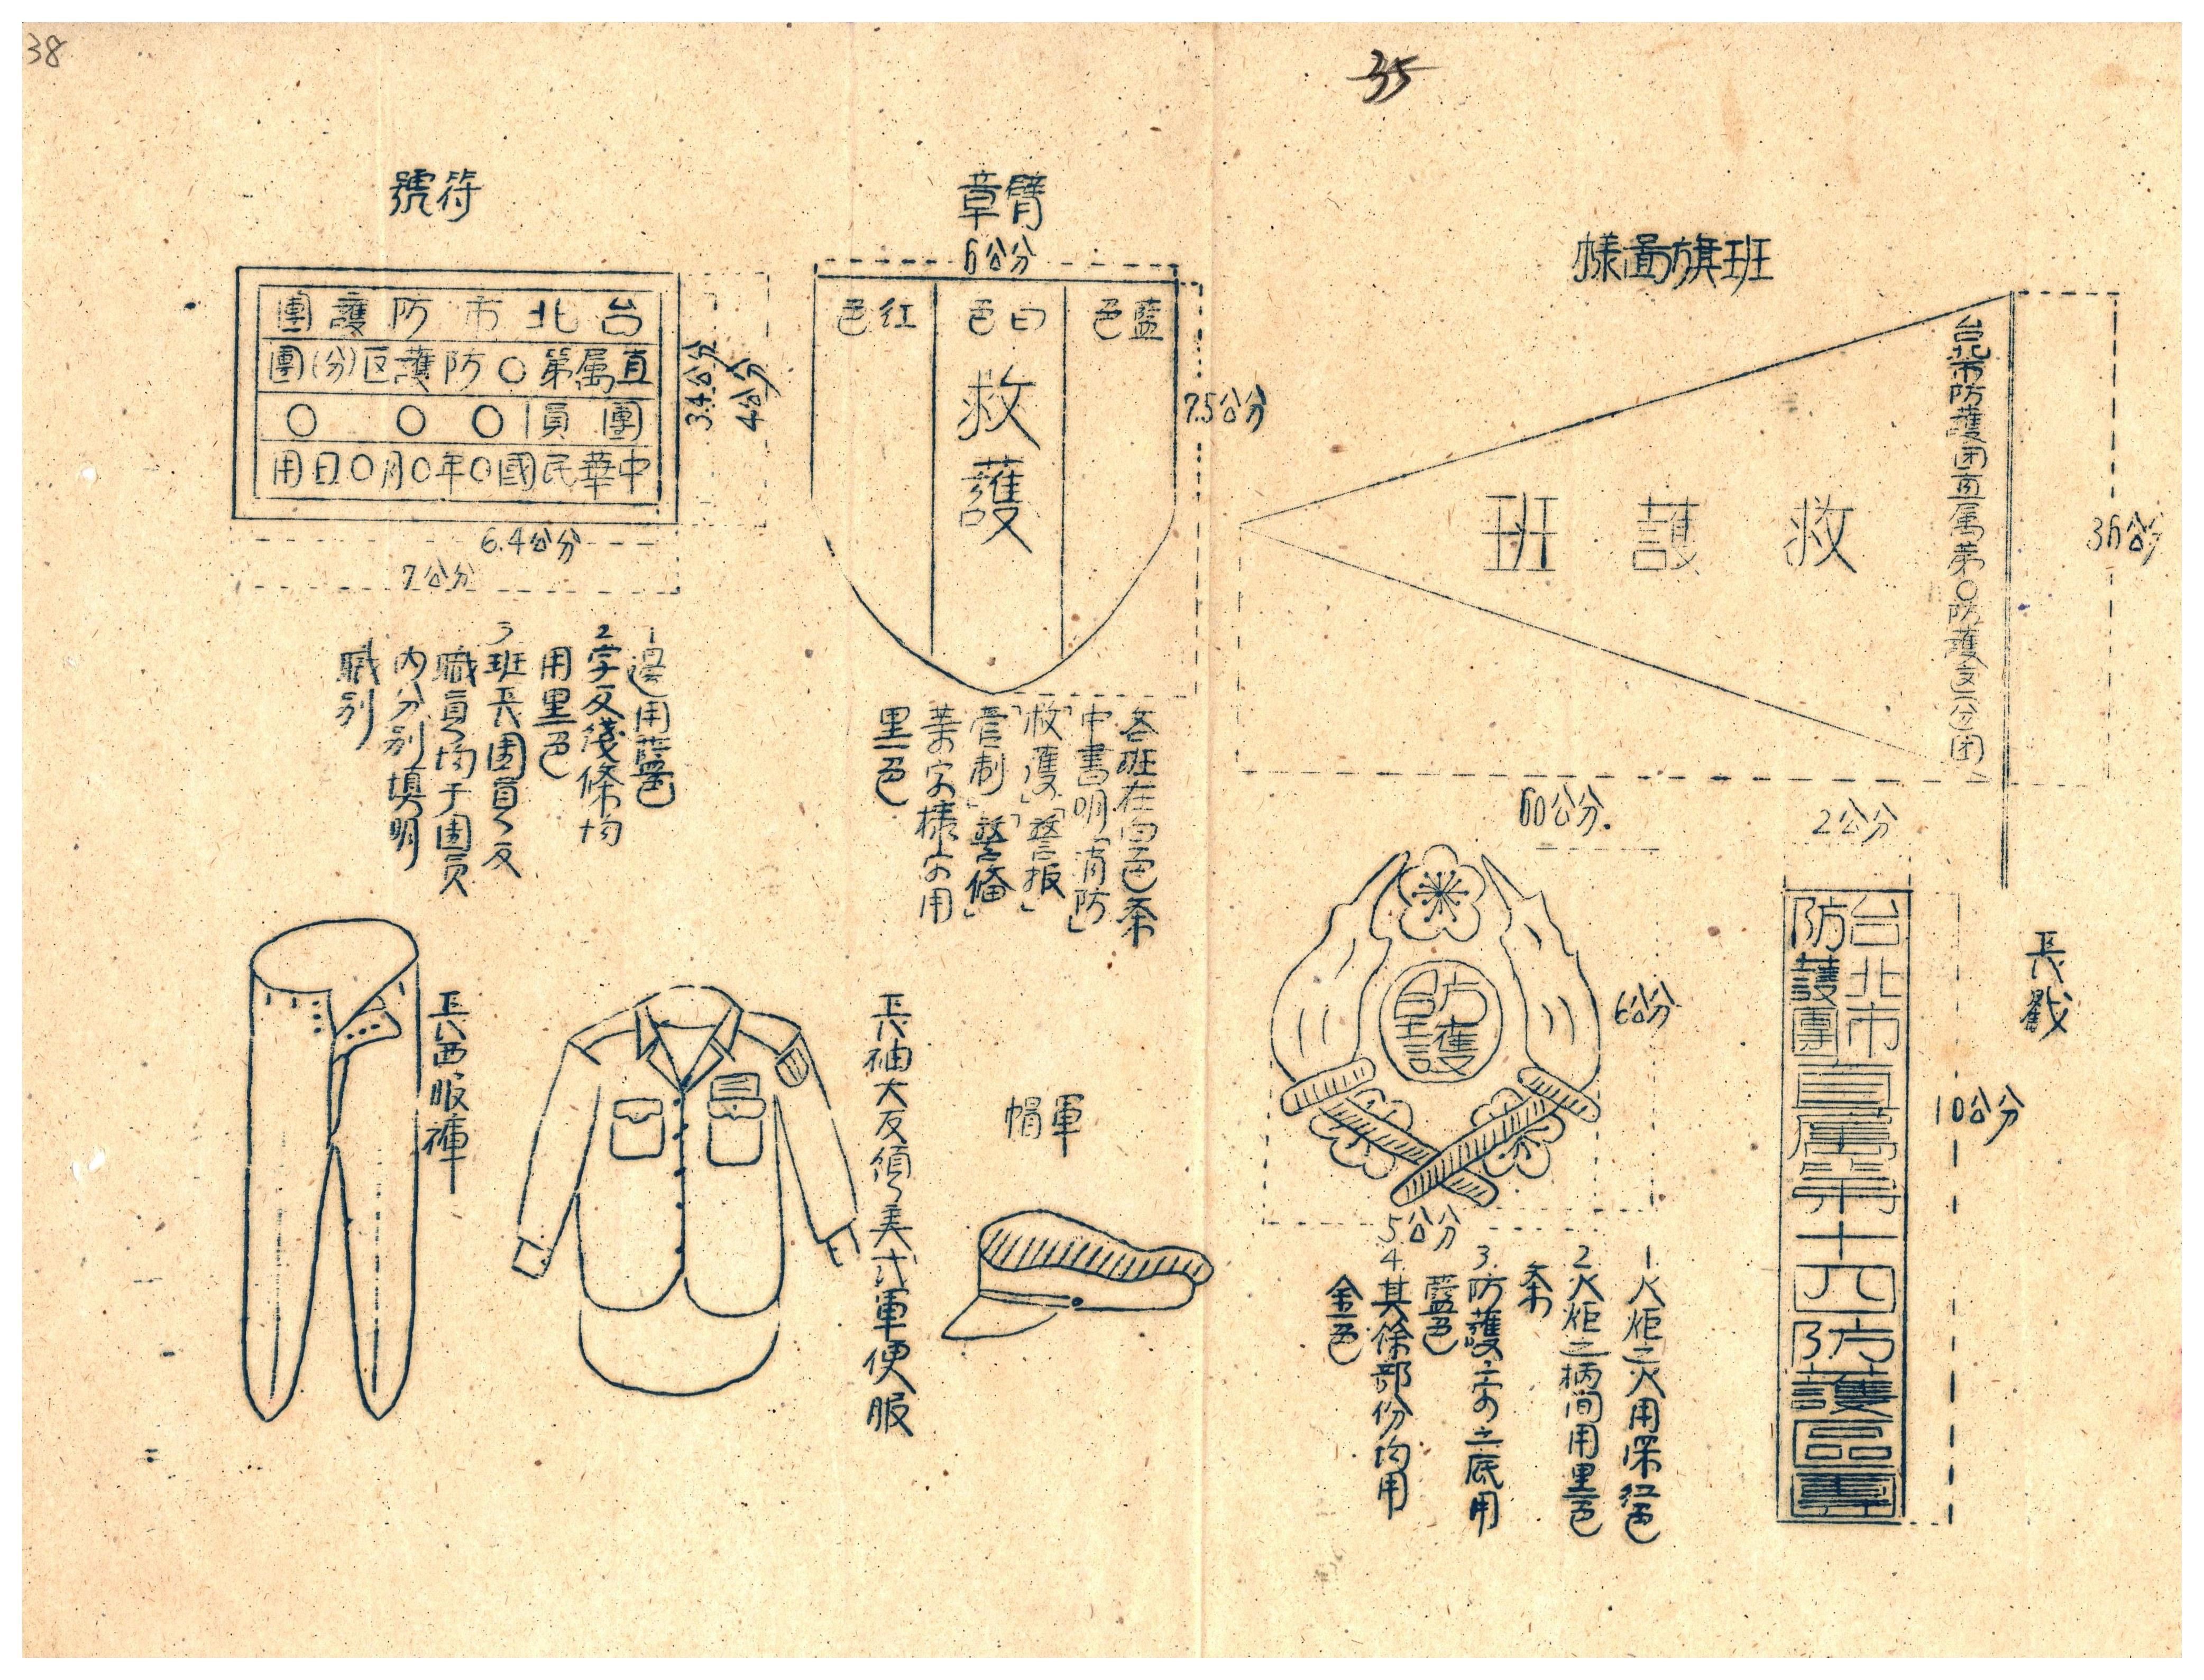 38
35
班旗圖樣
台北市防護团直属第○防護區分团
救護班
36公分
60公分.
長戳
2公分
台北市
防護團
直屬第十六防護區團
10公分
防護
6公分
5公分
1.火炬之火用深红色
2.火炬之柄间用黑色
条
3.防護二字之底用
藍色
4.其餘部份均用
金色
臂章
6公分
藍色
白色
红色
救護
7.5公分
各班在白色条
中書明「消防」
「救護」「警报」
「管制」「警備」
等字樣字用
黑色
符號
台北市防護團
直属第○防護区(分)團
團員○○○
中華民國○年○月○日用
3.4公分
4公分
6.4公分
7公分
1邊用藍色
2字及綫條均
用黑色
3班長團員及
職員均于團員
内分别填明
職别
軍帽
長袖大反領美式軍便服
長西服褲